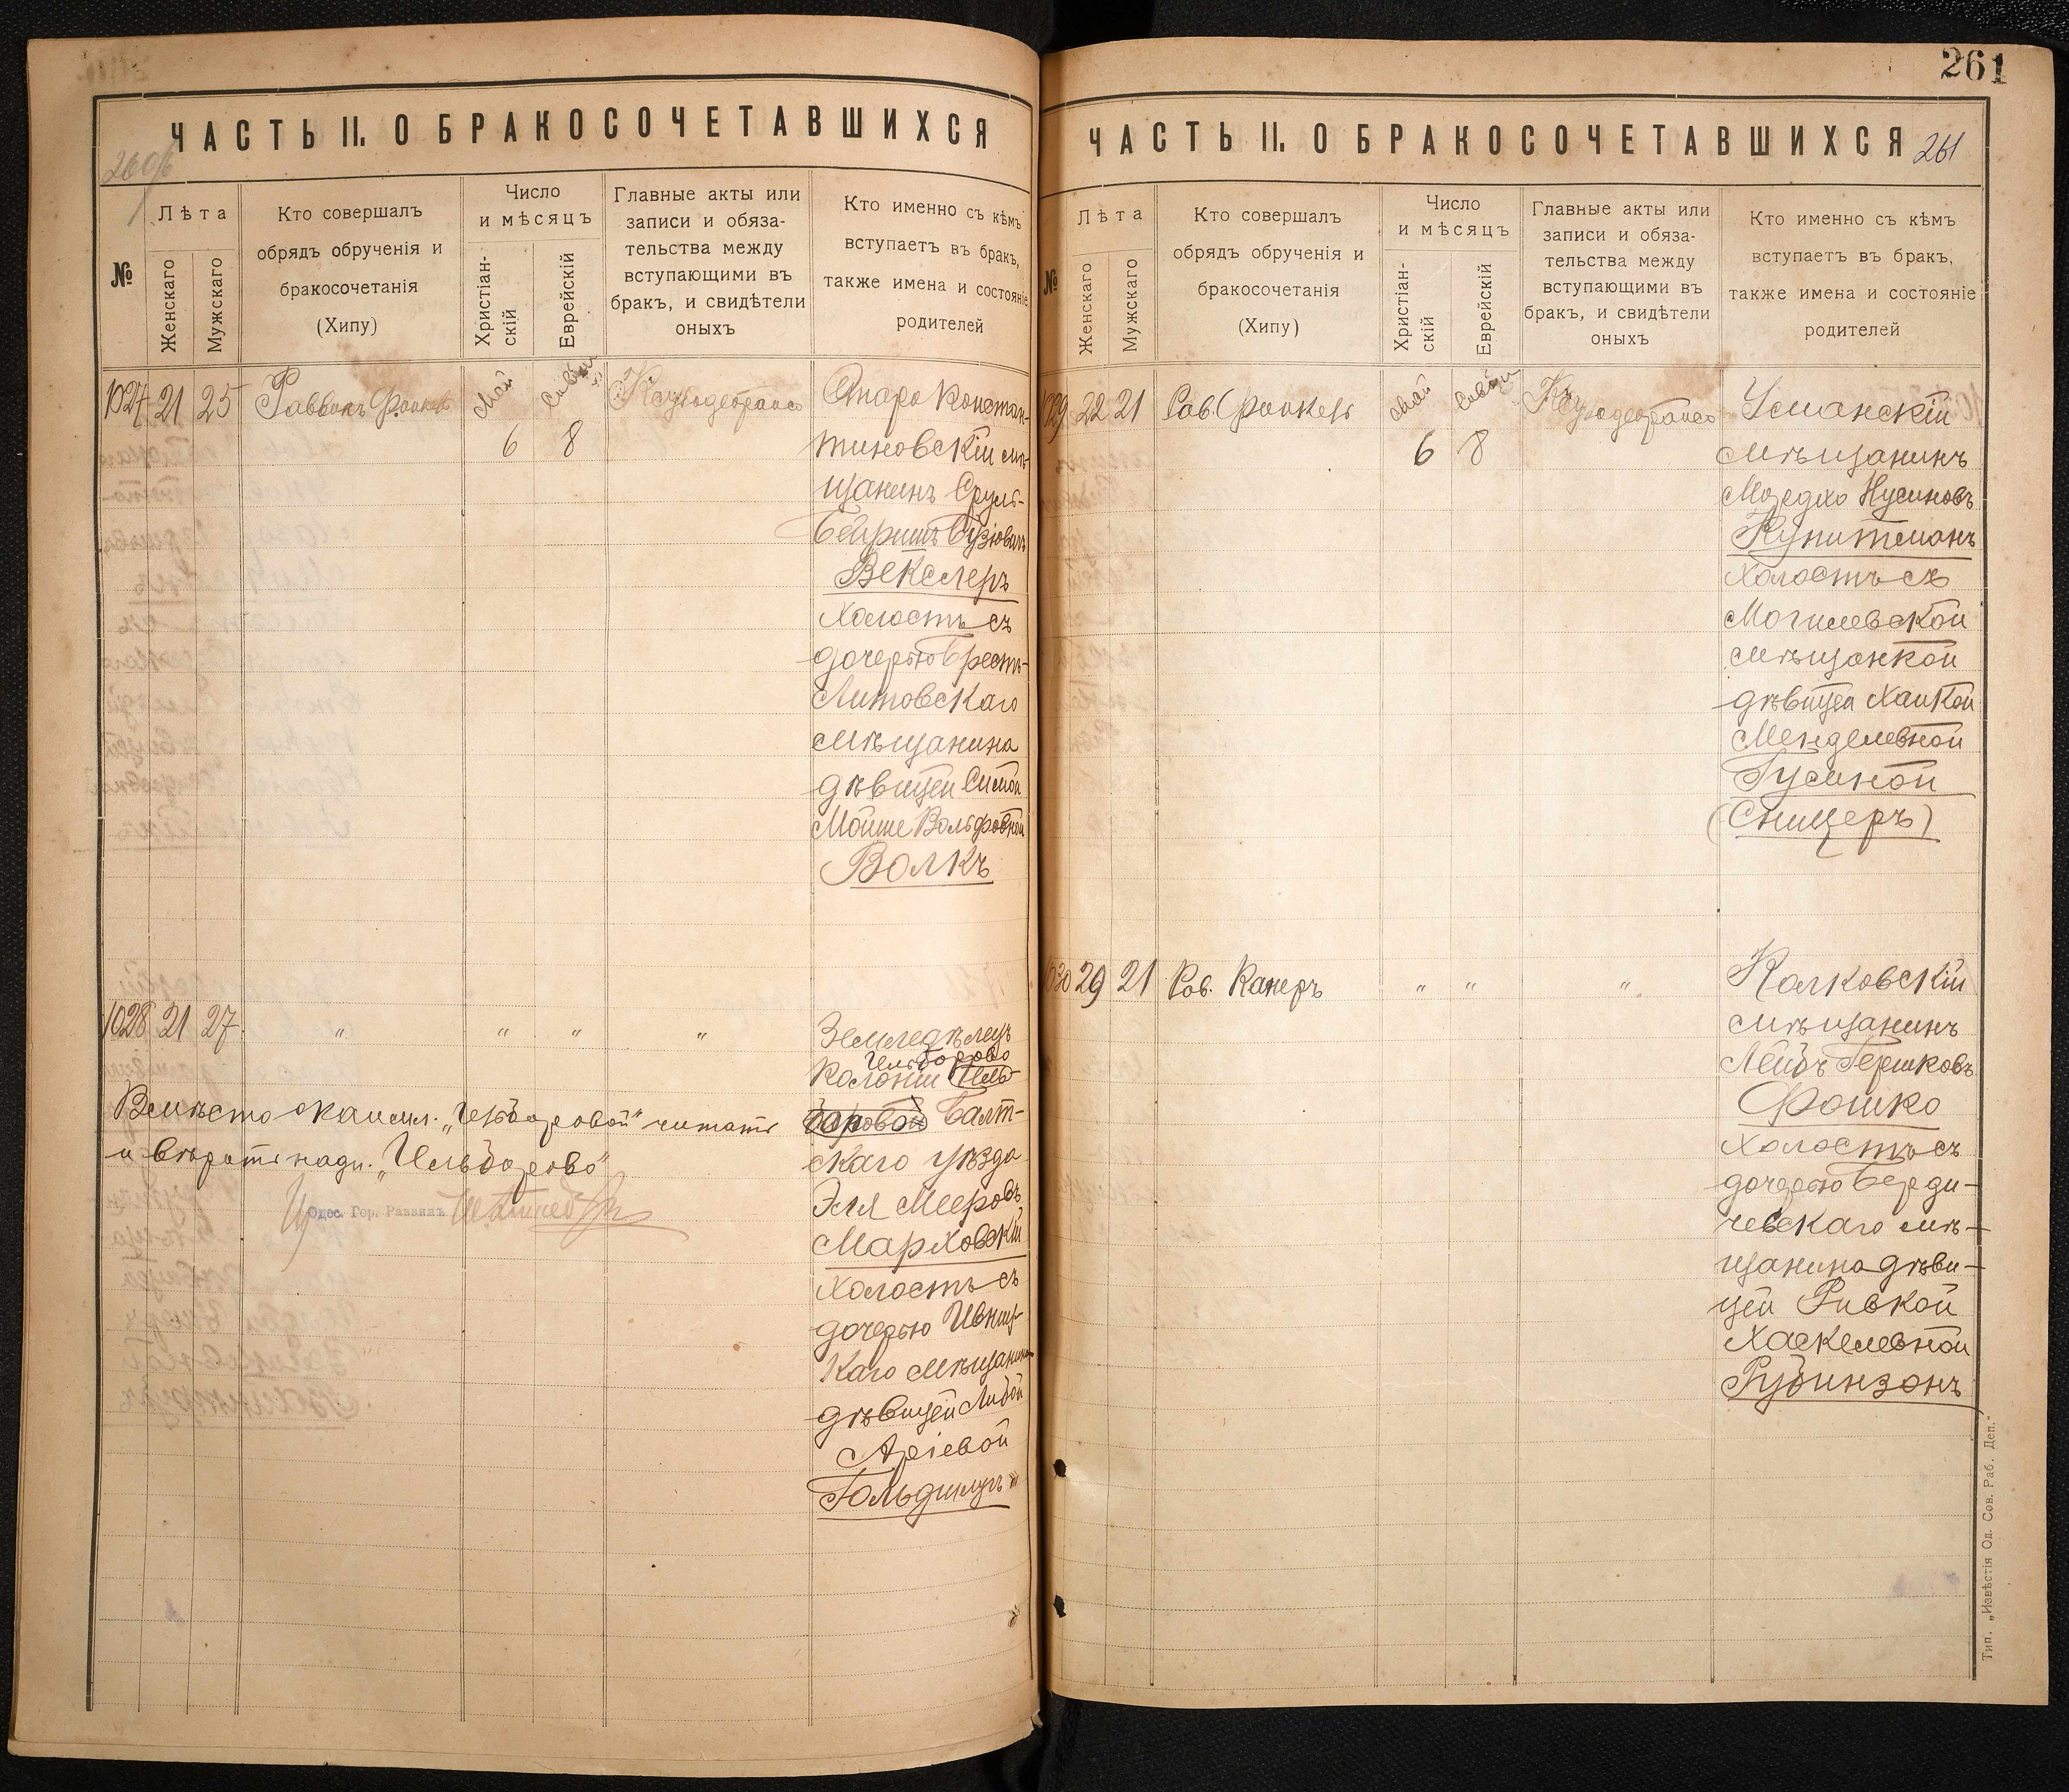 261
ЧАСТЬ II. О БРАКОСОЧЕТАВШИХСЯ
№
Лѣта
Женскаго
Мужскаго
Кто совершалъ
обрядъ обрученія и
бракосочетанія
(Хипу)
Число
и мѣсяцъ
Христіан-
скій
Еврейскій
Главные акты или
записи и обяза-
тельства между
вступающими въ
бракъ, и свидѣтели
оныхъ
Кто именно съ кѣмъ
вступаетъ въ бракъ,
также имена и состояніе
родителей
1027 21 25 Раввинъ Май
6 8
Старо Констан-
тиновскій мѣ-
щанинъ Сруль-
Векслеръ
Холостъ съ
дочерью Брестъ-
Литовскаго
мѣщанина
дѣвицей Симой
Мойше Вольфовной
Волкъ
1028 21 27 " " " "
Земледѣлецъ
колоніи
Балт-
скаго уѣзда
Эля Мееровъ
Марховскій
Холостъ съ
дочерью Ивниц-
каго мѣщанина
дѣвицей Либой
Аріевой
Гольдшлугъ
Вмѣсто читать
Одес. Гор. Раввинъ
ЧАСТЬ II. О БРАКОСОЧЕТАВШИХСЯ 261
№
Лѣта
Женскаго
Мужскаго
Кто совершалъ
обрядъ обрученія и
бракосочетанія
(Хипу)
Число
и мѣсяцъ
Христіан-
скій
Еврейскій
Главные акты или
записи и обяза-
тельства между
вступающими въ
бракъ, и свидѣтели
оныхъ
Кто именно съ кѣмъ
вступаетъ въ бракъ,
также имена и состояніе
родителей
1029 22 21 Рав. Май
6 8
Уманскій
мѣщанинъ
Мордко Нусиновъ
Купитманъ
Холостъ съ
Могилевской
мѣщанкой
дѣвицей Хайкой
Менделевной
Гусиной
(Сницеръ)
1030 29 21 Рав. Канеръ " " "
Калковскій
мѣщанинъ
Лейбъ Гершковъ
Фошко
Холостъ съ
дочерью Берди-
чевскаго мѣ-
щанина дѣви-
цей Ривкой
Хаскелевной
Рубинзонъ
Тип. „Извѣстія Од. Сов. Раб. Деп."